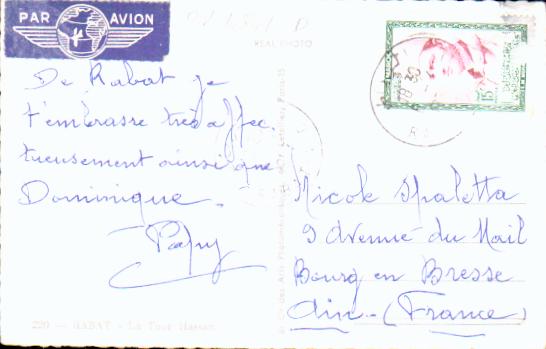 PAR AVION
REAL PHOTO
De Rabat je
t'embrasse très affec.
tueusement ainsi que
Dominique.
Papy
220 - RABAT - La Tour Hassan
Nicole Spaletta
9 Avenue du Mail
Bourg en Bresse
Ain - (France)
15